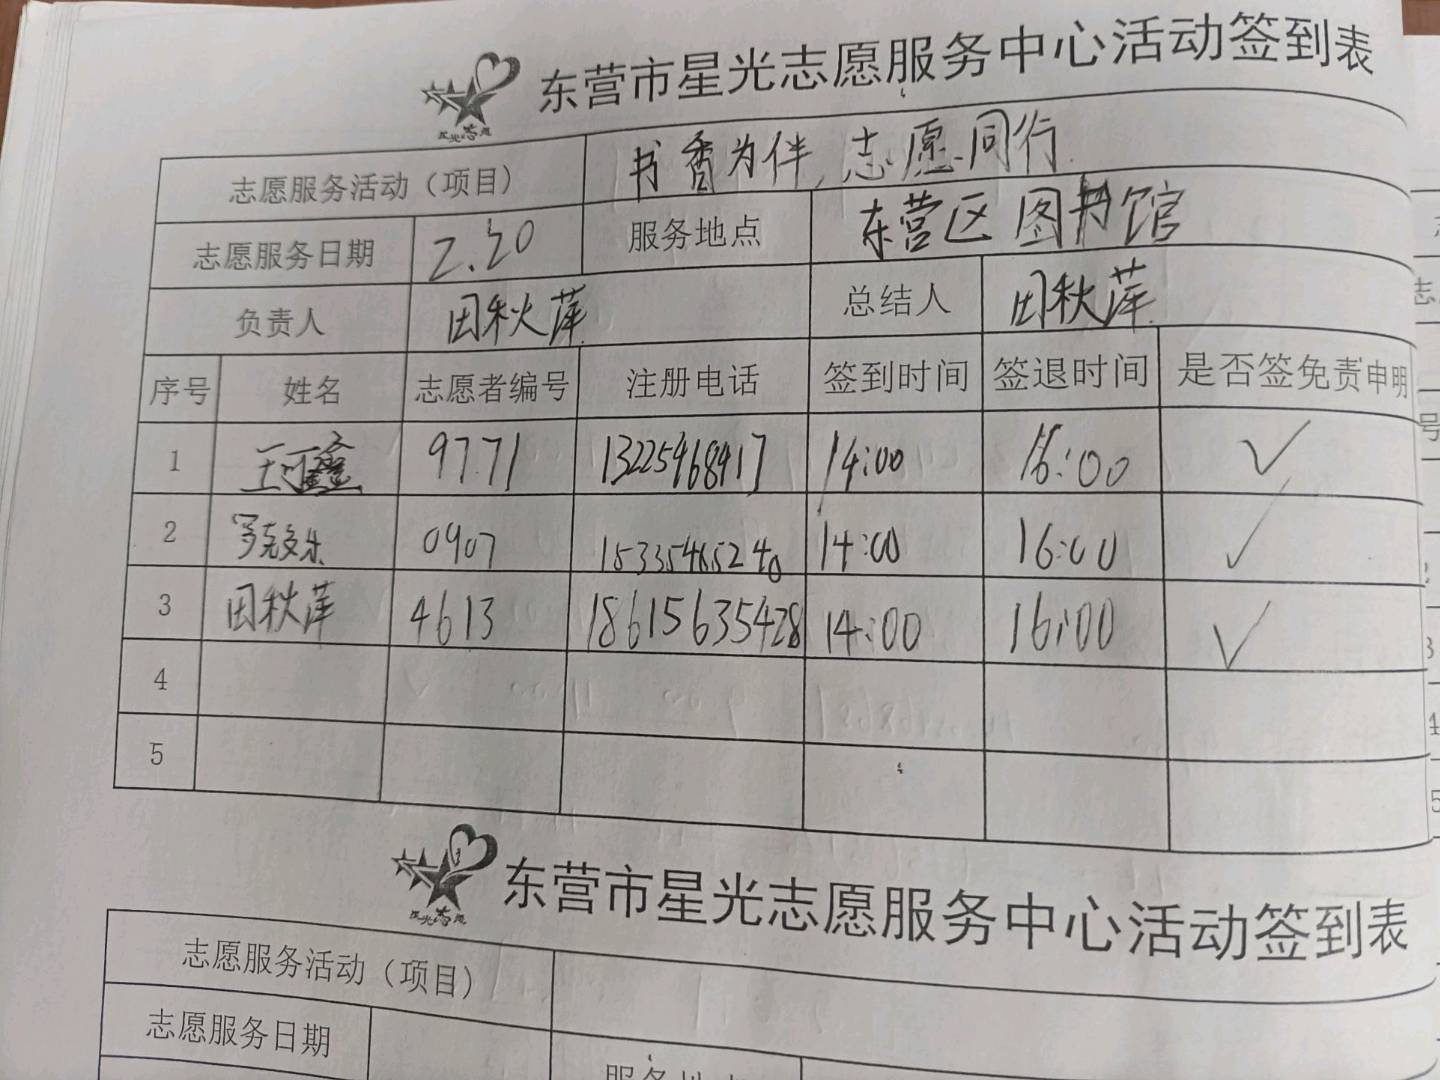 东营市星光志愿服务中心活动签到表
星光志愿
志愿服务活动（项目） 书香为伴，志愿同行
志愿服务日期 2.20 服务地点 东营区图书馆
负责人 田秋萍 总结人 田秋萍
序号 姓名 志愿者编号 注册电话 签到时间 签退时间 是否签免责申明
1 王珂鑫 9771 13225468417 14:00 16:00 ✓
2 0907 15335465240 14:00 16:00 ✓
3 田秋萍 4613 18615635428 14:00 16:00 ✓
4
5
东营市星光志愿服务中心活动签到表
星光志愿
志愿服务活动（项目）
志愿服务日期